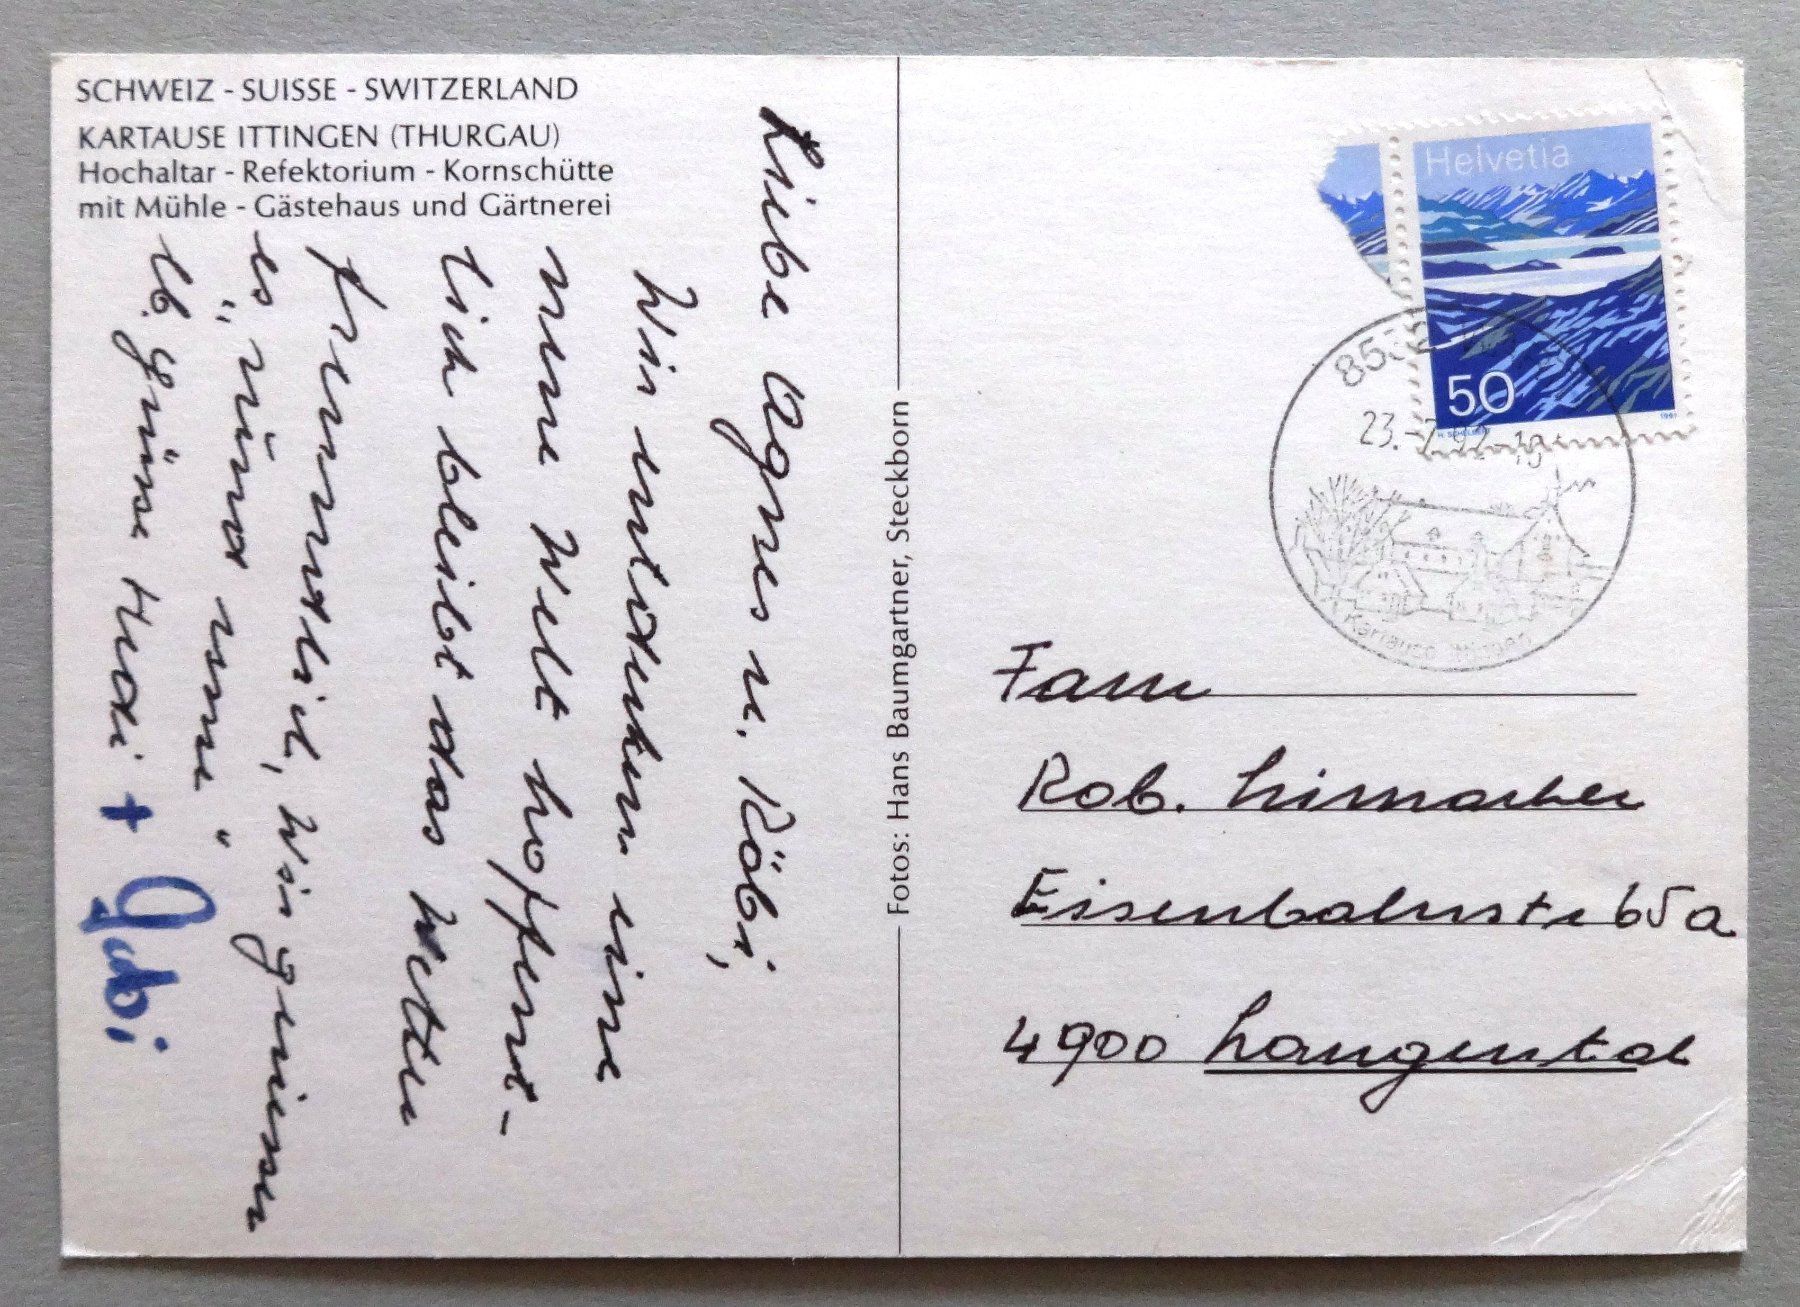 SCHWEIZ - SUISSE - SWITZERLAND
KARTAUSE ITTINGEN (THURGAU)
Hochaltar - Refektorium - Kornschütte
mit Mühle - Gästehaus und Gärtnerei
Liebe Agnes u. Röbi,
Wir entdecken eine
neue Welt hoffent-
lich bleibt das Wetter
freundlich, Wir geniessen
es "rund umi"
lb. Grüsse Hedi + Gabi
Fotos: Hans Baumgartner, Steckborn
Helvetia
50
1991
23.-7.92
Kartause Ittingen
Fam
Rob.
Eisenbahnstr 65a
4900 Langental